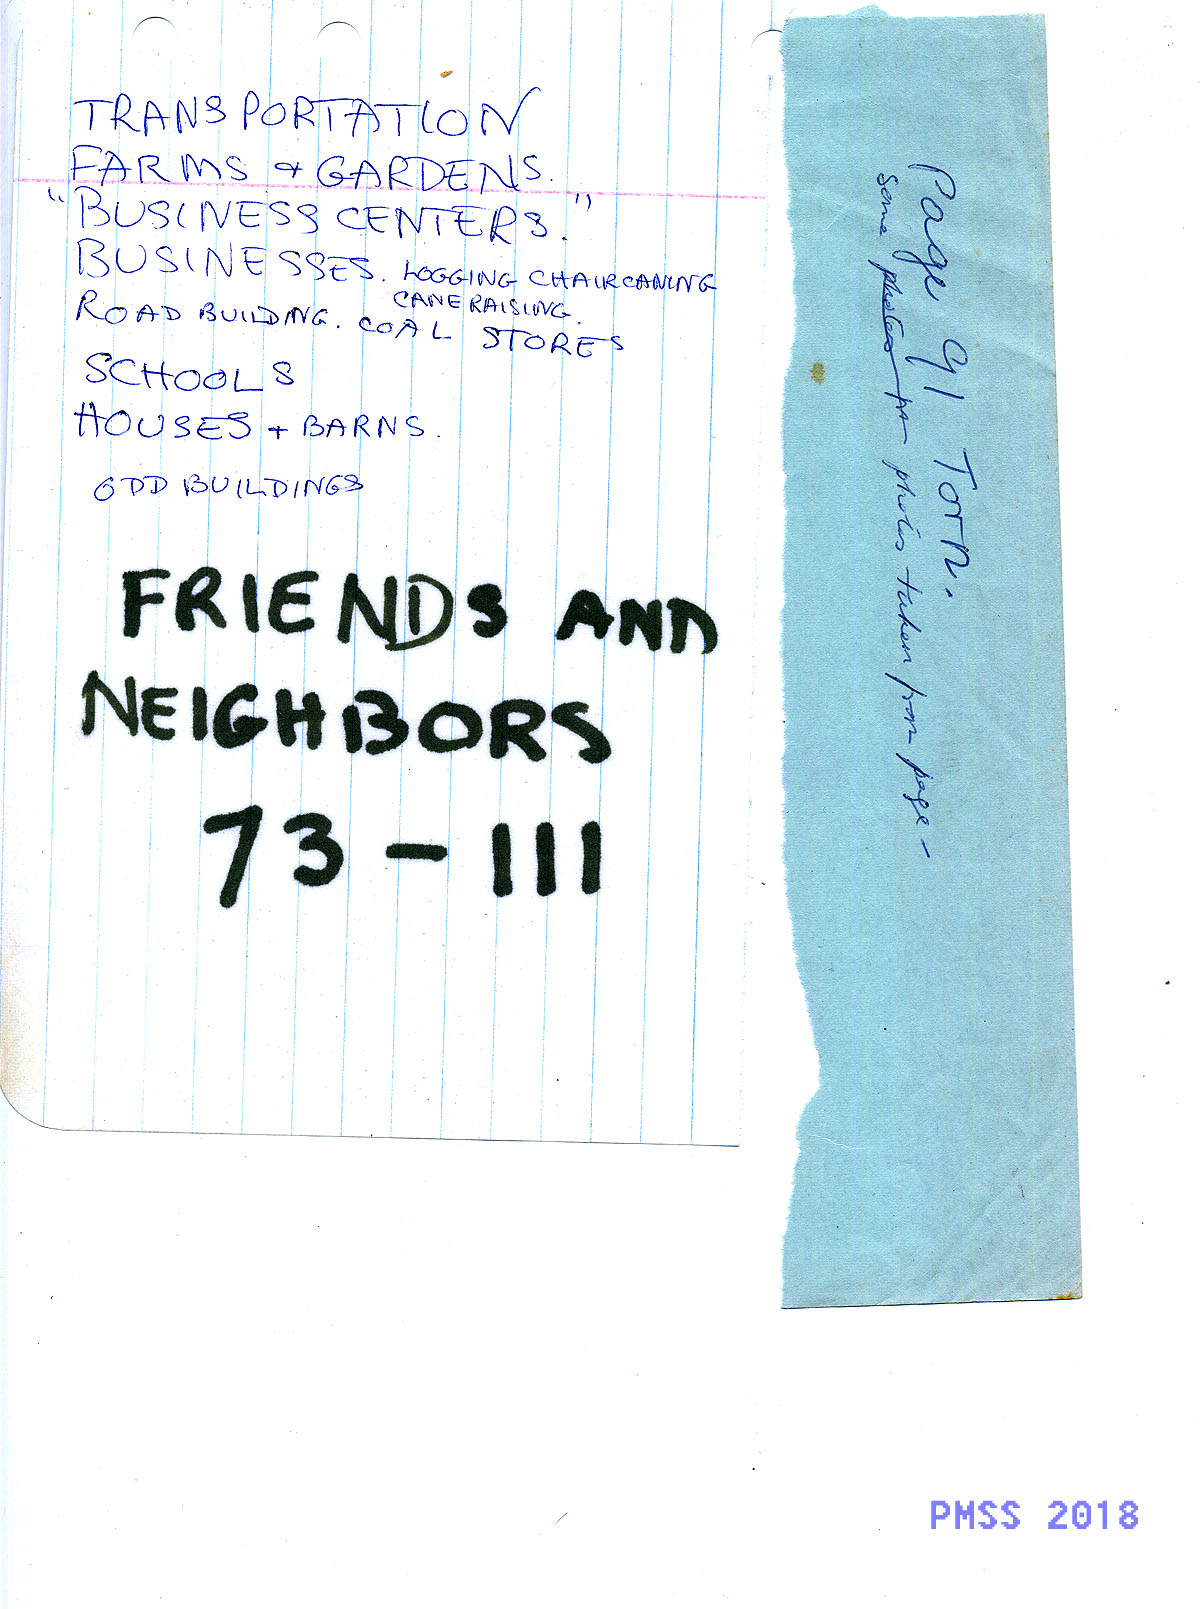 TRANSPORTATION
FARMS + GARDENS.
"BUSINESS CENTERS."
BUSINESSES. LOGGING CHAIRCANING
CANE RAISING.
ROAD BUILDING. COAL STORES
SCHOOLS
HOUSES + BARNS.
ODD BUILDINGS
FRIENDS AND
NEIGHBORS
73 - 111
Page 91 Torn.
some photos taken from page -
PMSS 2018